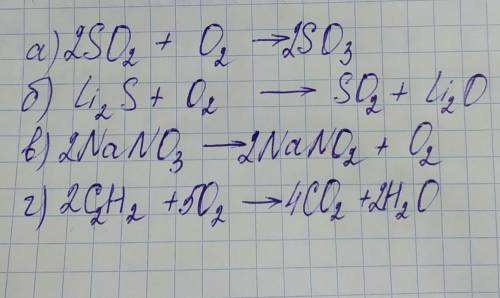 а) 2SO₂ + O₂ → 2SO₃
б) Li₂S + O₂ → SO₂ + Li₂O
в) 2NaNO₃ → 2NaNO₂ + O₂
г) 2C₂H₂ + 5O₂ → 4CO₂ + 2H₂O